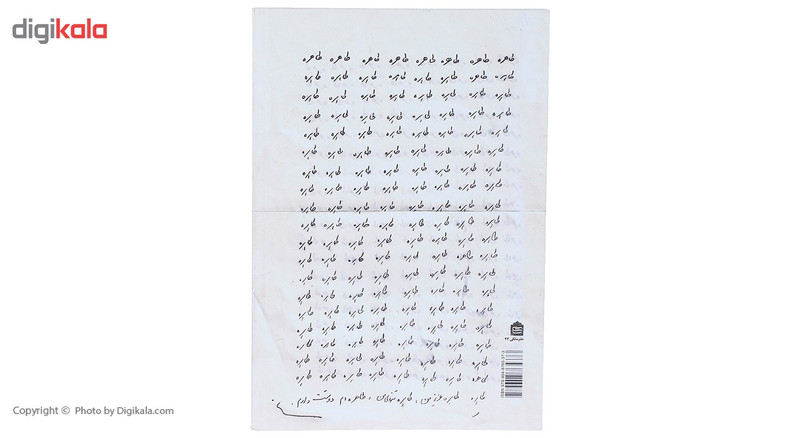 digikala
طاهره طاهره طاهره طاهره طاهره طاهره طاهره طاهره
طاهره طاهره طاهره طاهره طاهره طاهره طاهره طاهره
طاهره طاهره طاهره طاهره طاهره طاهره طاهره طاهره
طاهره طاهره طاهره طاهره طاهره طاهره طاهره طاهره
طاهره طاهره طاهره طاهره طاهره طاهره طاهره طاهره
طاهره طاهره طاهره طاهره طاهره طاهره طاهره طاهره
طاهره طاهره طاهره طاهره طاهره طاهره طاهره طاهره
طاهره طاهره طاهره طاهره طاهره طاهره طاهره طاهره
طاهره طاهره طاهره طاهره طاهره طاهره طاهره طاهره
طاهره طاهره طاهره طاهره طاهره طاهره طاهره طاهره
طاهره طاهره طاهره طاهره طاهره طاهره طاهره طاهره
طاهره طاهره طاهره طاهره طاهره طاهره طاهره طاهره
طاهره طاهره طاهره طاهره طاهره طاهره طاهره طاهره
طاهره طاهره طاهره طاهره طاهره طاهره طاهره طاهره
طاهره طاهره طاهره طاهره طاهره طاهره طاهره طاهره
طاهره طاهره طاهره طاهره طاهره طاهره طاهره طاهره
طاهره طاهره طاهره طاهره طاهره طاهره طاهره طاهره
طاهره طاهره طاهره طاهره طاهره طاهره طاهره طاهره
طاهره طاهره طاهره طاهره طاهره طاهره طاهره طاهره
طاهره طاهره عزیز من، طاهره تنهای من، طاهره ام دوستت دارم.
Copyright © Photo by Digikala.com